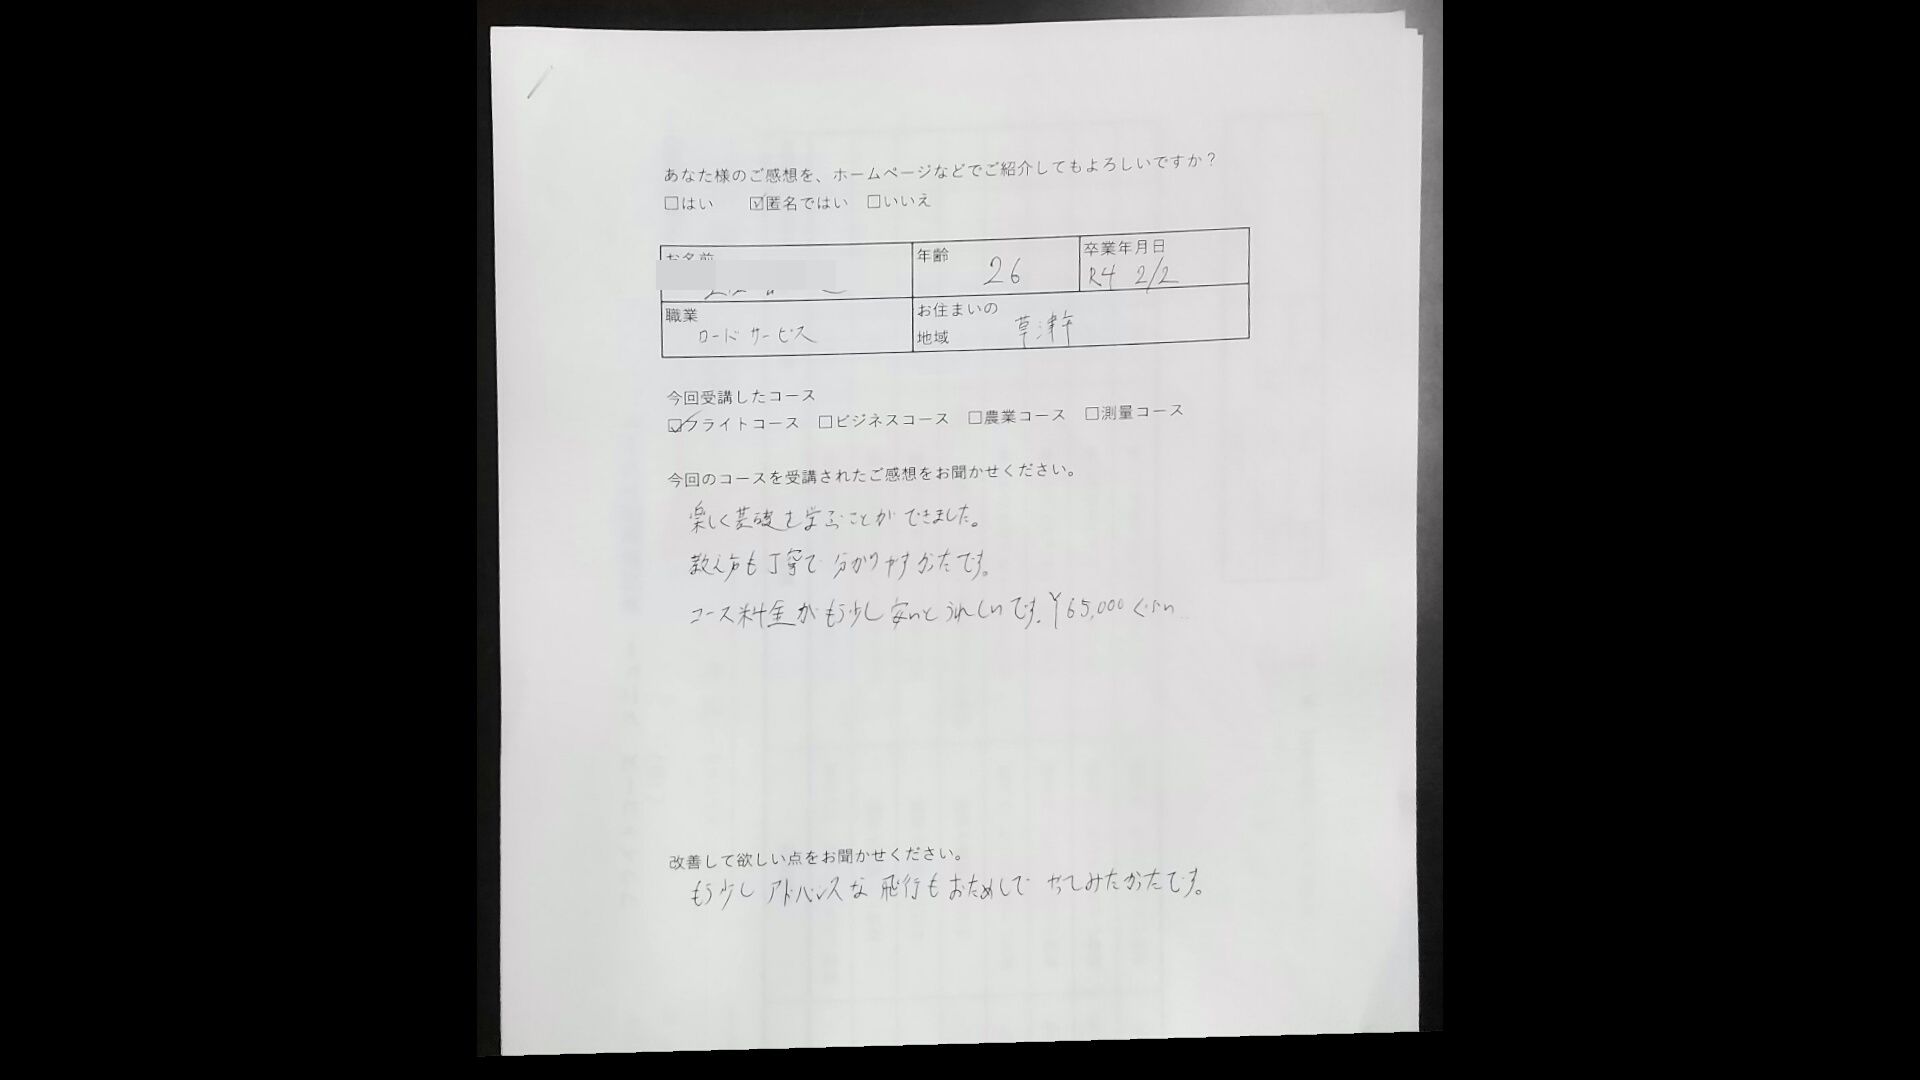 あなた様のご感想を、ホームページなどでご紹介してもよろしいですか？
□はい ☑匿名ではい □いいえ
お名前
年齢 26
卒業年月日 R4 2/2
職業 ロードサービス
お住まいの地域 草津市
今回受講したコース
☑フライトコース □ビジネスコース □農業コース □測量コース
今回のコースを受講されたご感想をお聞かせください。
楽しく基礎を学ぶことができました。
教え方も丁寧で分かりやすかったです。
コース料金がもう少し安いとうれしいです。¥65,000くらい
改善して欲しい点をお聞かせください。
もう少しアドバンスな飛行もおためしでやってみたかったです。